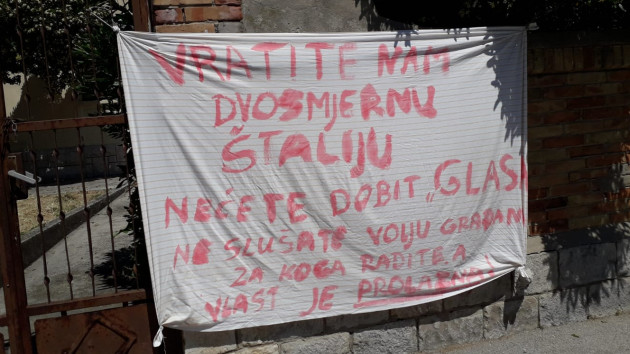 VRATITE NAM
DVOSMJERNU
ŠTALIJU
NEĆETE DOBIT „GLAS
NE SLUŠATE VOLJU GRAĐAN
ZA KOGA RADITE A
VLAST JE